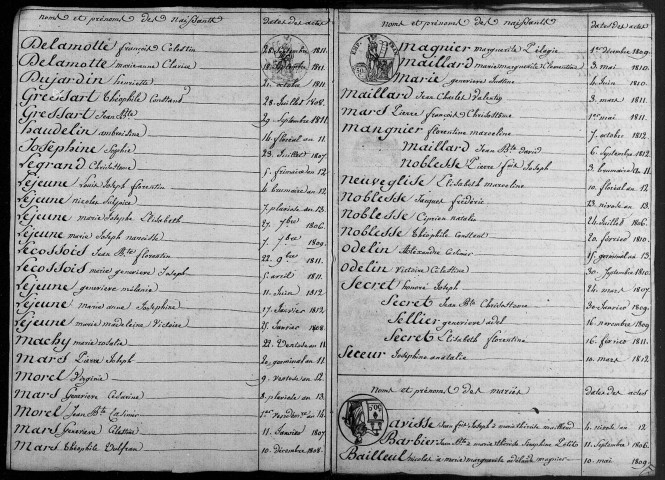 noms et prénoms des naissants dates des actes
Delamotte françois Celestin 1811.
Delamotte marie anne Clarice 1811.
Dujardin henriette octobre 1811
Gressart Théophile Constant 28. Juillet 1808.
Gressart Jean Bte 29. Septembre 1811.
haudelin ambroisine 16. floréal an 11
Joséphine Sophie 23. Juillet 1807.
Legrand Chrisostome 5. frimaire an 12
Lejeune Louis Joseph florentin 4. brumaire an 12.
Lejeune nicolas Sulpice 7. pluviose an 13.
Lejeune marie Josephe Elisabeth 27. 7bre 1806.
Lejeune marie Joseph narcisse 7. 7bre 1809.
Lecossois Jean Bte florentin 22. 9bre 1811.
Lecossois marie genevieve Joseph 5. avril 1811.
Lejeune genevieve mélanie 11. Juin 1812
Lejeune marie anne Joséphine 17. Janvier 1812
Lejeune marie madeleine Victoire 21. Janvier 1808.
machy marie rosalie 22. Ventose an 11.
Mars Pierre Joseph 22. germinal an 11.
Morel Virginie 9. Ventose an 12.
Mars Genevieve Césarine 8. pluviose an 13.
Morel Jean Bte Casimir 1er an 14.
Mars Genevieve Celestine 11. Janvier 1807.
Mars Théophile Dolfran 10. décembre 1808.
noms et prénoms des naissants dates des actes
Magnier marguerite Pélagie 1er Décembre 1809.
maillard marie marguerite Clementine 3. mai 1810.
Marie genevieve Justine 4. Juin 1810.
Maillard Jean Charles Valentin 3. mars 1811.
Mars Pierre françois Chrisostome 1er mai 1811.
mangnier florentine marceline 7. octobre 1812.
Maillard Jean Bte david 6. Septembre 1812.
Noblesse Pierre fois Joseph 3. brumaire an 11.
neuveglise Elisabeth marceline 10. floréal an 12
Noblesse Jacques frédéric 23. nivose an 13.
Noblesse Ciprien natalis 24. Juillet 1806.
noblesse Théophile Constant 20. février 1810.
odelin Alexandre Casimir 25. germinal an 13.
odelin Victoire Celestine 30. Septembre 1810.
Secret honoré Joseph 24. mars 1807.
Secret Jean Bte Chrisostome 30. Janvier 1809.
Sellier genevieve adel 16. novembre 1809.
Secret Elisabeth florentine 16. février 1811.
Seceur Joséphine anatalie 10. mars 1812.
noms et prénoms des mariés dates des actes
avisse Jean fois Joseph & marie thérèse maillard 4. nivose an 12
Barbier Jean Bte & marie thérèse Séraphine 11. Septembre 1806.
Bailleul nicolas & marie marguerite adélaïde magnier 10. mai 1809.